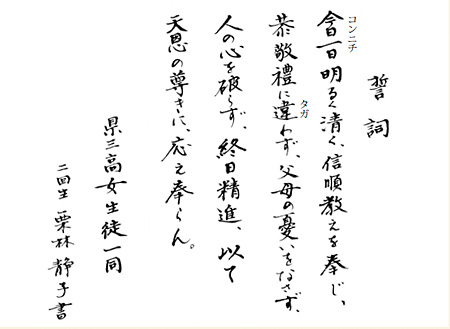 誓詞
今日一日明るく清く、信順教えを奉じ、
コンニチ
恭敬禮に違わず、父母の憂いをなさず、
タガ
人の心を破らず、終日精進、以て
天恩の尊きに、応え奉らん。
県三高女生徒一同
二回生 栗林静子書